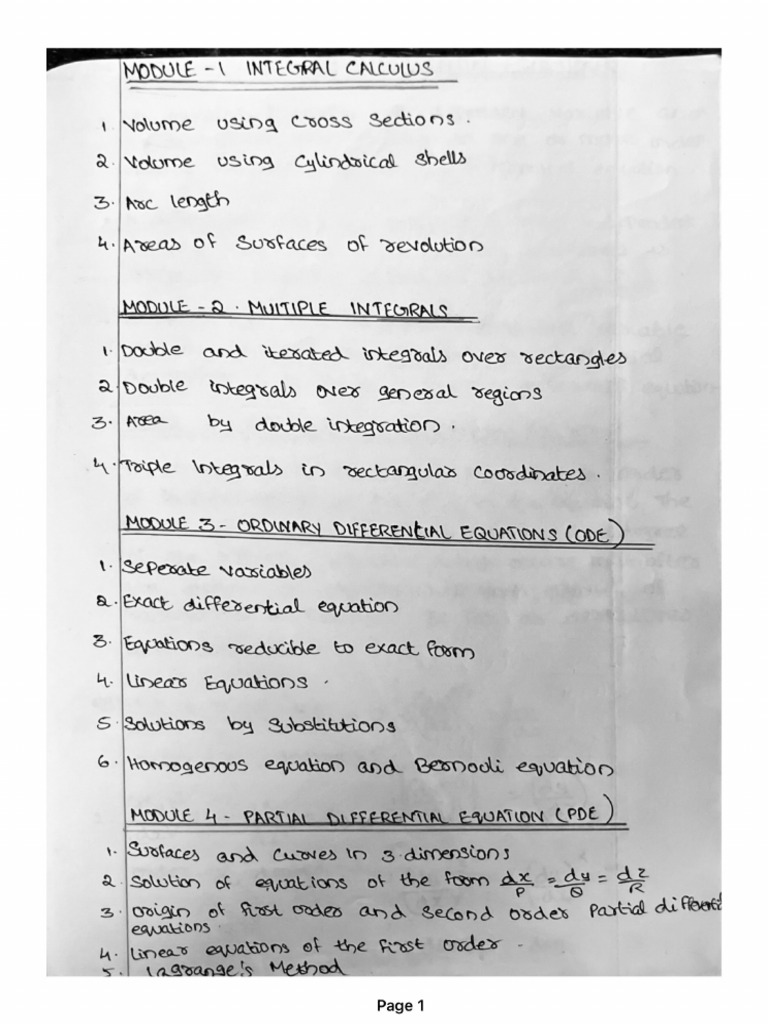 MODULE - 1 INTEGRAL CALCULUS
1. Volume using Cross Sections.
2. Volume using Cylindrical Shells
3. Arc length
4. Areas of Surfaces of revolution
MODULE - 2. MULTIPLE INTEGRALS
1. Double and iterated integrals over rectangles
2. Double integrals over general regions
3. Area by double integration.
4. Triple Integrals in rectangular coordinates.
MODULE 3 - ORDINARY DIFFERENTIAL EQUATIONS (ODE)
1. Seperate variables
2. Exact differential equation
3. Equations reducible to exact form
4. Linear Equations.
5. Solutions by Substitutions
6. Homogenous equation and Bernodli equation
MODULE 4 - PARTIAL DIFFERENTIAL EQUATION (PDE)
1. Surfaces and Curves in 3-dimensions
2. Solution of equations of the form dx/P = dy/Q = dz/R
3. Origin of first order and second order Partial differenti
equations.
4. Linear equations of the first order.
5. Lagrange's Method
Page 1